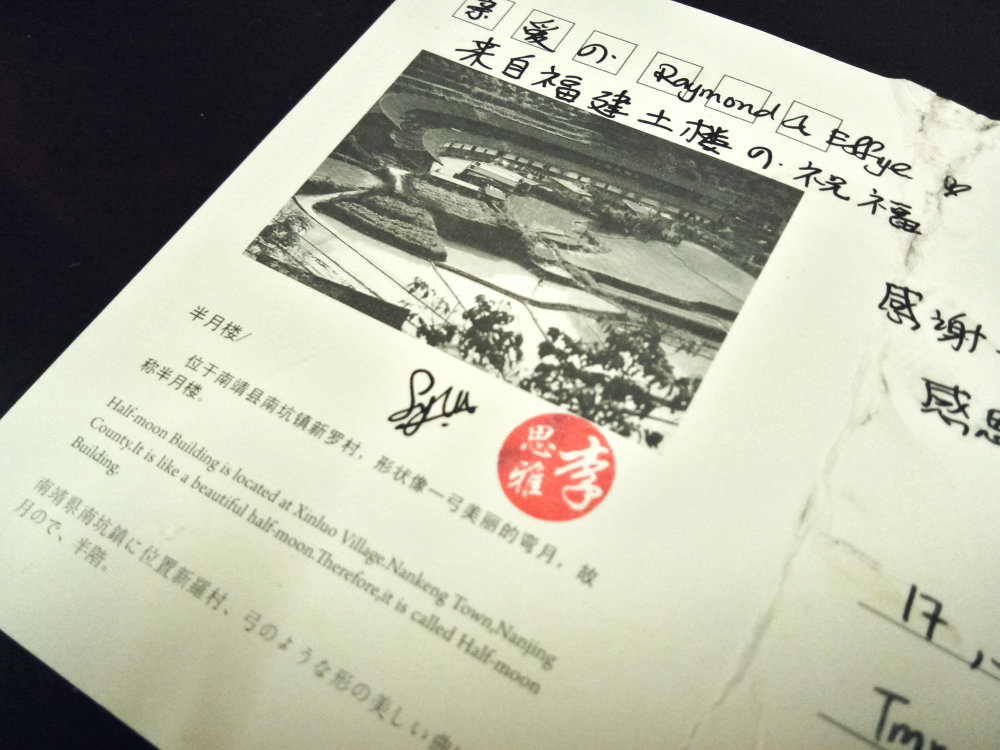 亲爱の Raymond & Effye
来自福建土楼の祝福
感谢
感恩
半月楼/
位于南靖县南坑镇新罗村，形状像一弓美丽的弯月，故
称半月楼。
Half-moon Building is located at Xinluo Village,Nankeng Town,Nanjing
County.It is like a beautiful half-moon.Therefore,it is called Half-moon
Building.
南靖県南坑鎮に位置新羅村、弓のような形の美しい曲
月ので、半階。
李
思雅
17,